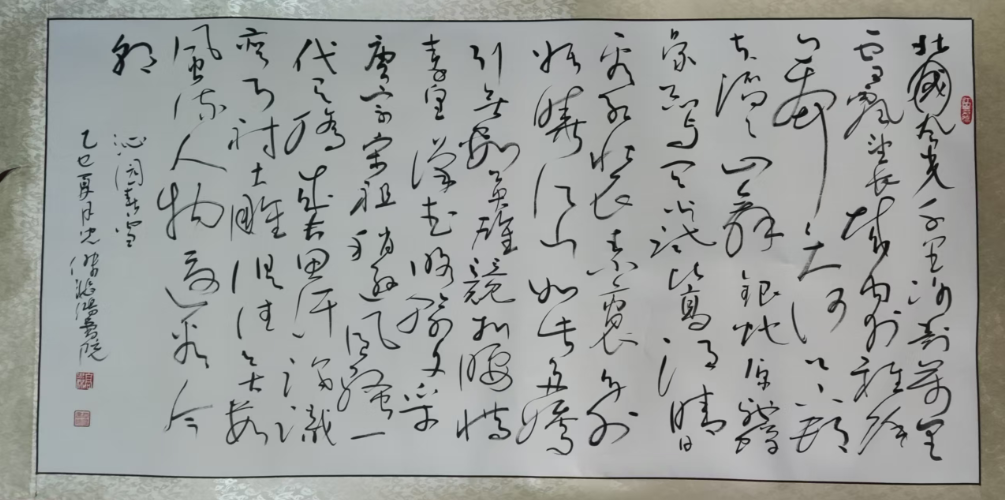 北国风光千里冰封万里
雪飘望长城内外惟余
莽莽大河上下顿
失滔滔山舞银蛇原驰
蜡象欲与天公试比高须晴
日看红装素裹分外
妖娆江山如此多娇
引无数英雄竞折腰惜
秦皇汉武略输文采
唐宗宋祖稍逊风骚一
代天骄成吉思汗只识
弯弓射大雕俱往矣数
风流人物还看今
朝
沁园春雪
乙巳夏月
书院